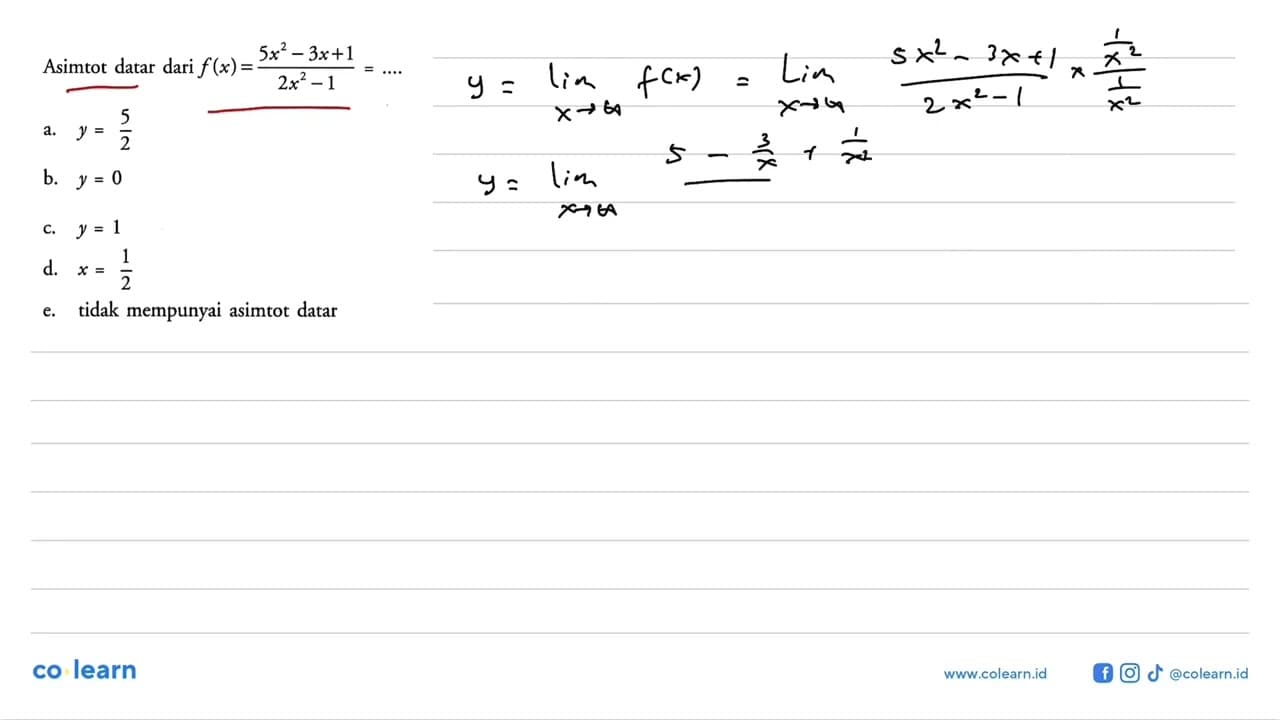 Asimtot datar dari f(x) = (5x² – 3x + 1)/(2x² – 1) = ....
a. y = 5/2
b. y = 0
c. y = 1
d. x = 1/2
e. tidak mempunyai asimtot datar
y = lim x→∞ f(x) = Lim x→∞ (5x² – 3x + 1)/(2x² – 1) × (1/x²)/(1/x²)
y = lim x→∞ 5 – 3/x + 1/x²
co learn
www.colearn.id
@colearn.id